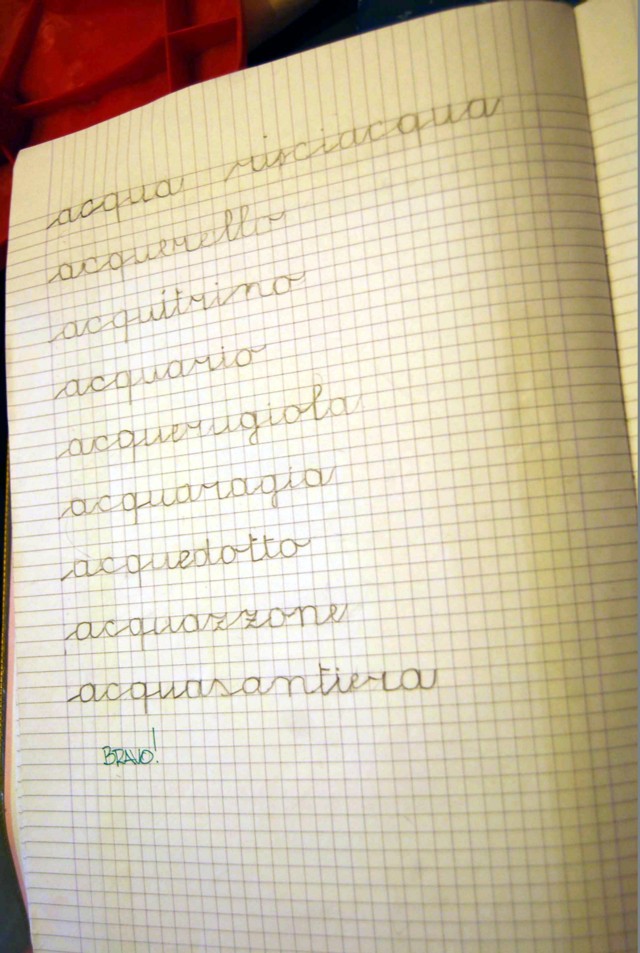 acqua risciacqua
acquerello
acquitrino
acquario
acquerugiola
acquaragia
acquedotto
acquazzone
acquasantiera
BRAVO!